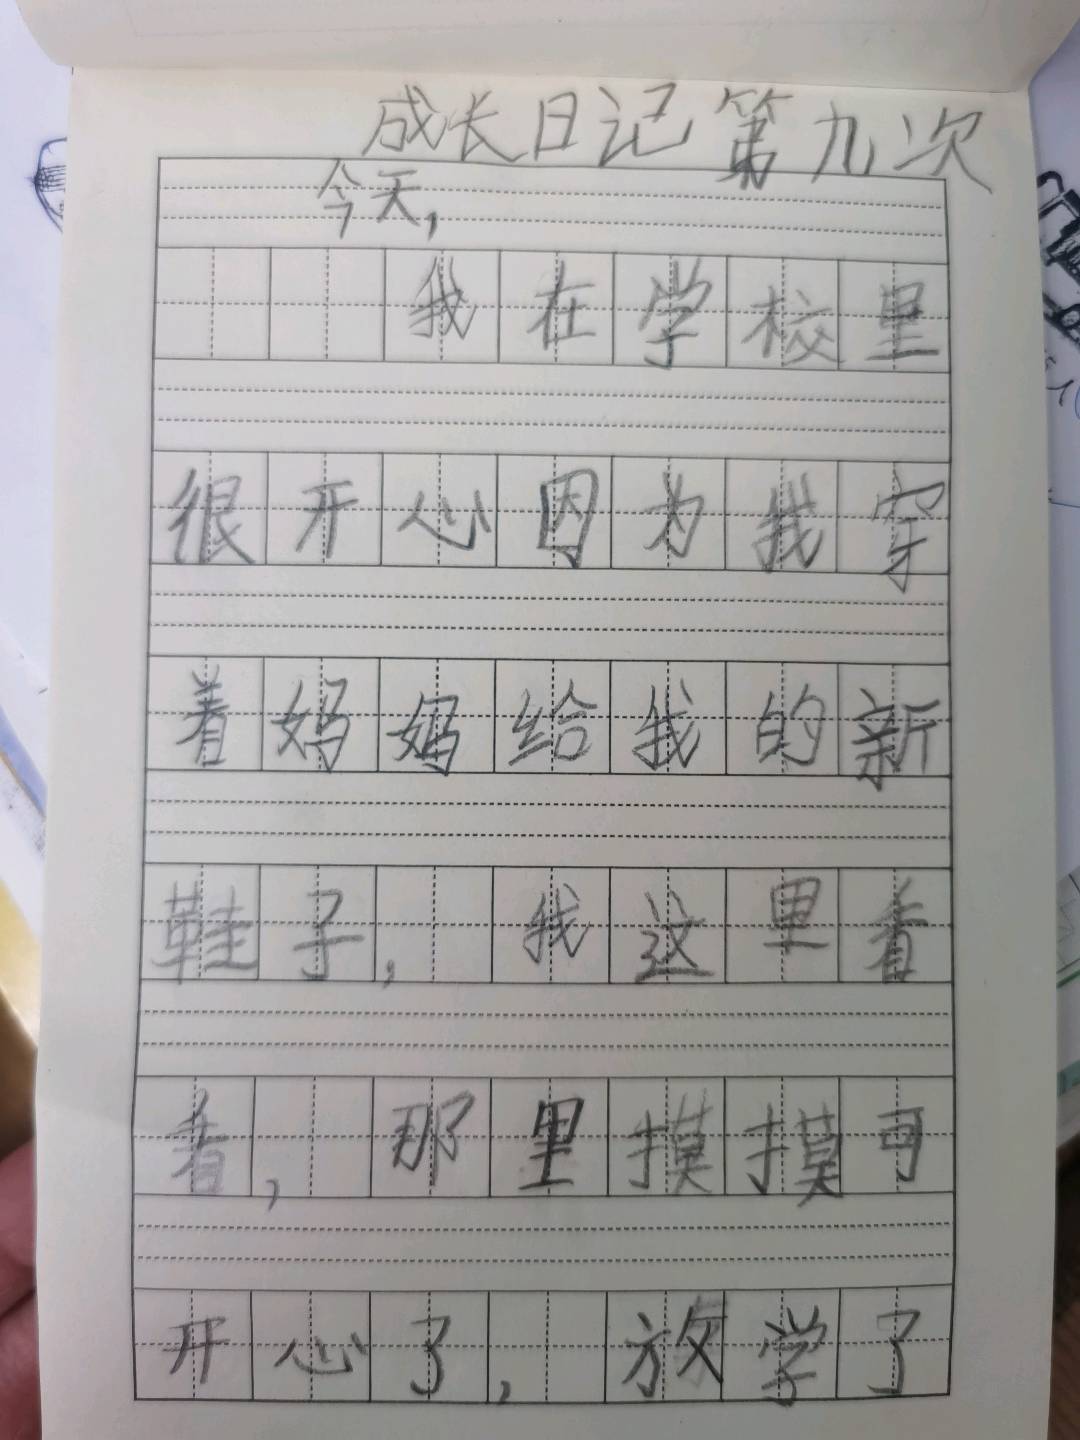 成长日记第九次
今天，
我在学校里
很开心因为我穿
着妈妈给我的新
鞋子，我这里看
看，那里摸摸可
开心了，放学了